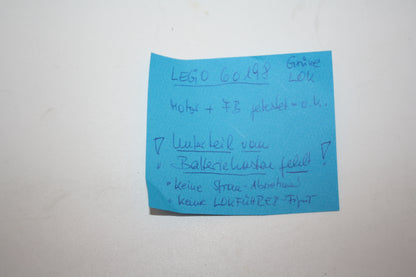 LEGO 60198 Grüne
LOK
Motor + FB getestet = o.k.
! Unterteil vom
Batteriekasten fehlt !
• keine Strom-Abnehmer
• keine LOKFÜHRER-Figur